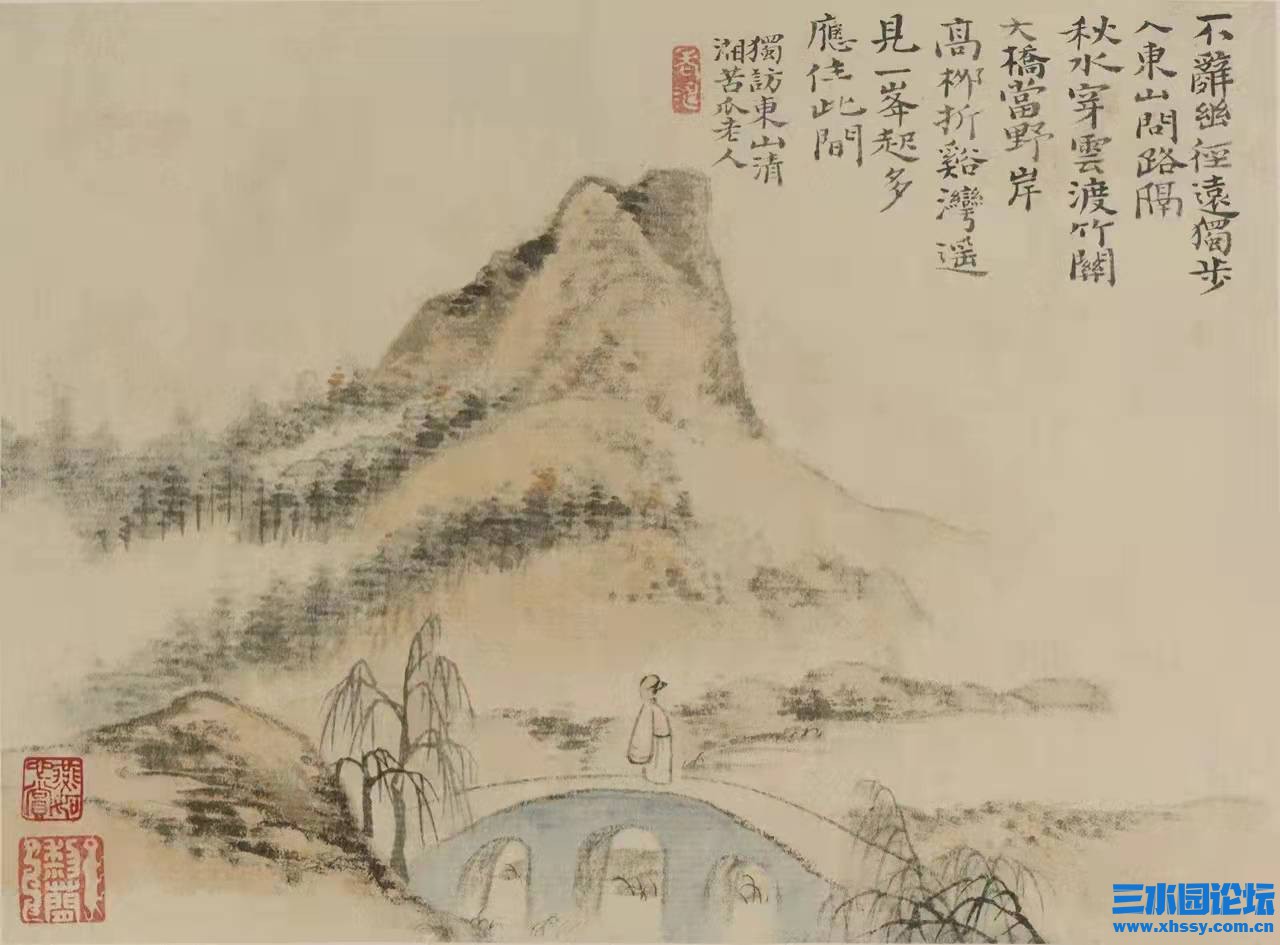 不辭幽徑遠獨步
入東山問路隔
秋水穿雲渡竹關
大橋當野岸
高柳折谿灣遥
見一峯起多
應住此間
獨訪東山清
湘苦瓜老人
三水园论坛
www.xhssy.com.cn